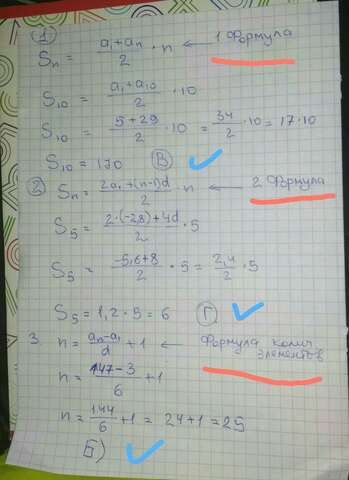 1 Sn = (a₁+aₙ)/2 · n ← 1 Формула
S₁₀ = (a₁+a₁₀)/2 · 10
S₁₀ = (5+29)/2 · 10 = 34/2 · 10 = 17 · 10
S₁₀ = 170 В
2 Sn = (2a₁+(n-1)d)/2 · n ← 2 Формула
S₅ = (2·(-2,8)+4d)/2 · 5
S₅ = (-5,6+8)/2 · 5 = 2,4/2 · 5
S₅ = 1,2 · 5 = 6 Г
3. n = (aₙ-a₁)/d + 1 ← Формула колич. элементов
n = (147-3)/6 + 1
n = 144/6 + 1 = 24+1 = 25
Б)